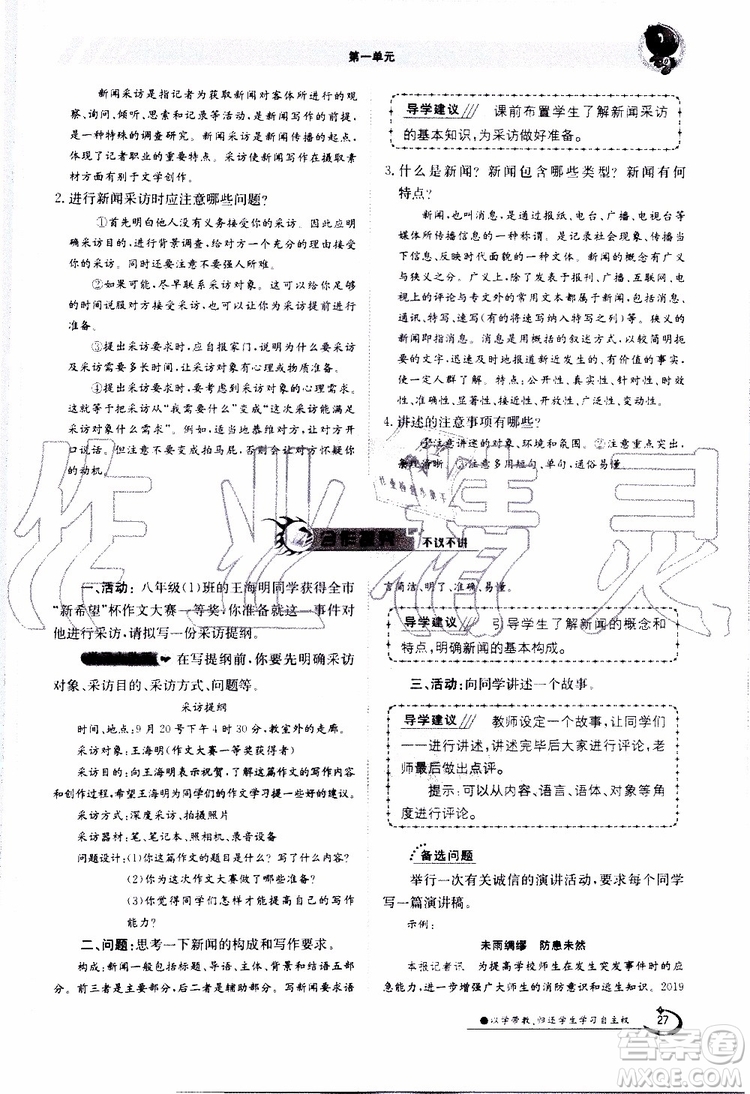 第一单元
新闻采访是指记者为获取新闻对客体所进行的观
察、询问、倾听、思索和记录等活动。新闻采访活动是
一种特殊的调查研究。新闻采访是新闻传播的起点，
体现了记者职业的重要特点。采访使新闻写作在摄取素
材方面有别于文学创作。
2. 进行新闻采访时应注意哪些问题?
①首先明白他人没有义务接受你的采访，尊重对
方的决定，进行背景调查，给对方一个充分的理由接受
你的采访。同时还要注意不要强人所难。
②如果可能，尽早联系采访对象，可以让你有足够
的时间说服对方接受，也可以让你为采访提前进行
准备。
③提出采访要求时，应自报家门，说明为什么要采访
及采访需要多长时间，让采访对象有心理准备。
④提出采访要求时，要考虑到采访对象的心理需求。
采访请求，从“我需要什么”变成“这次采访能满足
采访对象什么需求”。例如，适当地恭维被访者，打开
口说话。但注意不要变成拍马屁，否则会让对方怀疑你
的动机。
导学建议 课前布置学生了解新闻采访
的基本知识，为采访做好准备。
3. 什么是新闻? 新闻包含哪些类型? 新闻有何
特点?
新闻，也叫消息，是指通过报纸、电台、广播、电视等
媒体所传播信息的一种称谓。是记录社会现象、传播
信息、反映时代面貌的一种文体。新闻的概念有广义与
狭义之分。广义上，除了发表于报刊、广播、互联网、电视
上的评论与专文外的常用文本都属于新闻，包括消息、
通讯、特写、速写(有的将速写纳入特写之列)。狭义的
新闻即指消息。消息是用概括的叙述方式，以较简明
的文字，迅速及时地报道新近发生的、有价值的事实，
使一定人群了解。特点：公开性、真实性、针对性、时效
性、准确性、显著性、接近性、开放性、广泛性、变动性。
4. 讲述的注意事项有哪些?
①注意讲述的对象、环境和氛围。②注意重点突出，
条理清晰。③注意多用短句、单句，通俗易懂。
合作探究 不议不讲
一、活动：八年级(1)班的王海明同学获得全市
“新希望”杯作文大赛一等奖，你准备就这一事件对
他进行采访，请拟写一份采访提纲。
在写提纲前，你要先明确采访
对象、采访目的、采访方式、问题等。
采访提纲
时间、地点：9月20号下午4时30分，教室外的走廊。
采访对象：王海明(作文大赛一等奖获得者)
采访目的：向王海明表示祝贺，了解他的作文的写作内容
和创作经过，希望王海明为同学们的作文学习提一些好的建议。
采访方式：深度采访、拍摄照片
采访器材：笔、笔记本、照相机、录音设备
问题设计：(1)你这篇作文的题目是什么? 写了什么?
(2)你为这次作文大赛做了哪些准备?
(3)你觉得同学们怎样才能有效提高自己的写作
能力?
二、问题：思考一下新闻的构成和写作要求。
构成：新闻一般包括标题、导语、主体、背景和结语五部
分。前三者是主要部分，后二者是辅助部分。写新闻要求语
言简洁、明了、准确、易懂。
导学建议 引导学生了解新闻的概念和
特点，明确新闻的基本构成。
三、活动：向同学讲述一个故事。
导学建议 教师设定一个故事，让同学们
一一进行讲述，讲述完毕后大家进行评论，老
师最后做出点评。
提示：可以从内容、语言、语体、对象等角
度展开。
备选问题
举行一次有关诚信的演讲活动，要求每个同学
写一篇演讲稿。
示例：
未雨绸缪 防患未然
本报记者讯 为提高学校师生在发生突发事件时的应
急能力，进一步增强广大师生的消防意识和逃生知识。2019
●以学带教，归还学生学习自主权 27
作业精灵
答案圈
MXQE.COM